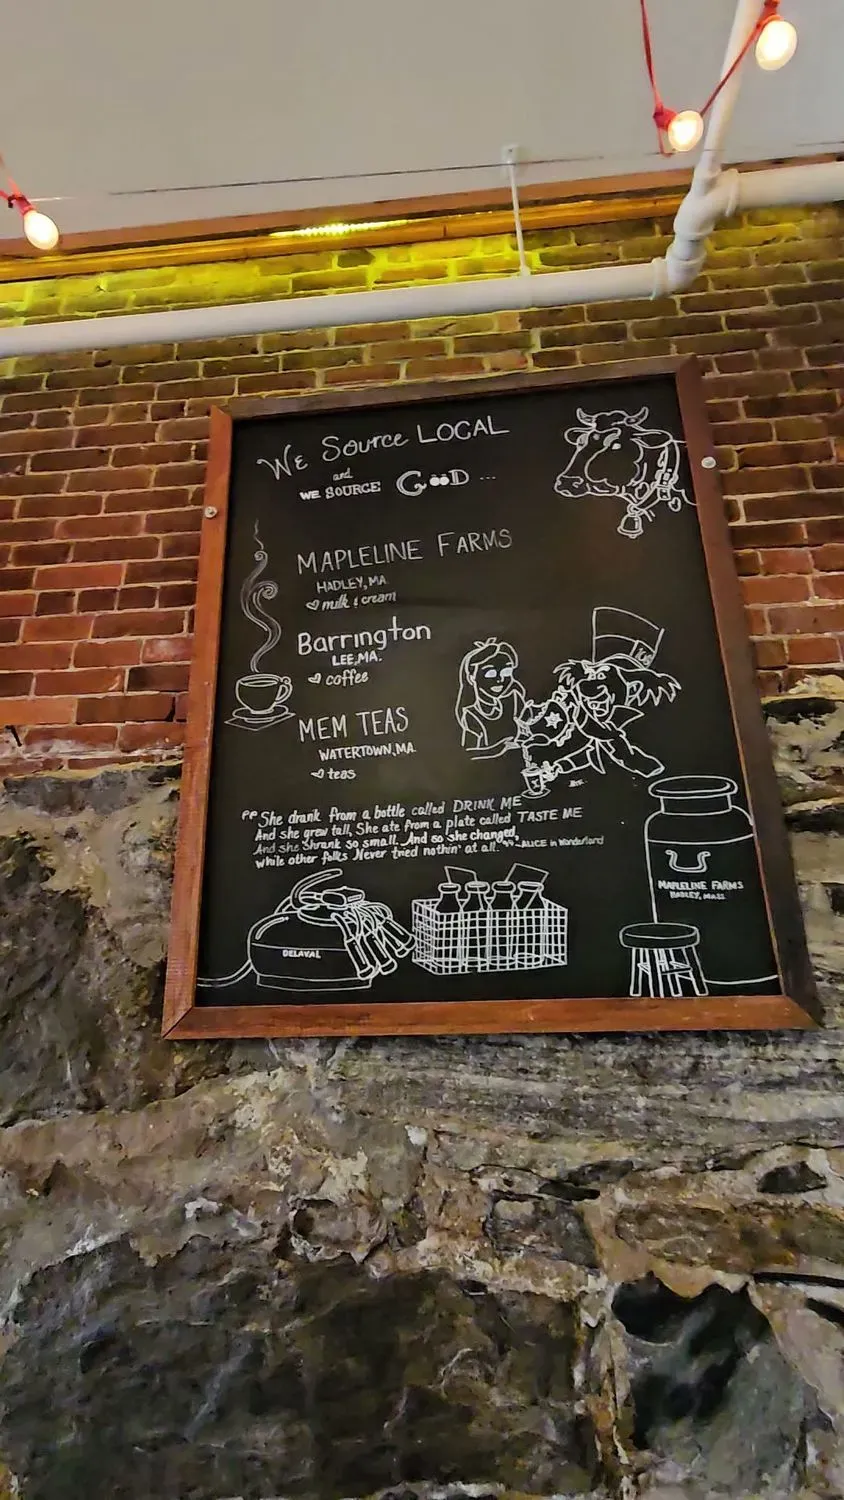 WE Source LOCAL
and
WE SOURCE GOOD ...
MAPLELINE FARMS
HADLEY, MA.
milk & cream
Barrington
LEE, MA.
coffee
MEM TEAS
WATERTOWN, MA.
teas
"She drank from a bottle called DRINK ME
And she grew tall, She ate from a plate called TASTE ME
And she Shrank so small. And so she changed,
while other folks Never tried nothin' at all." ALICE in Wonderland
MAPLELINE FARMS
HADLEY, MASS
DELAVAL